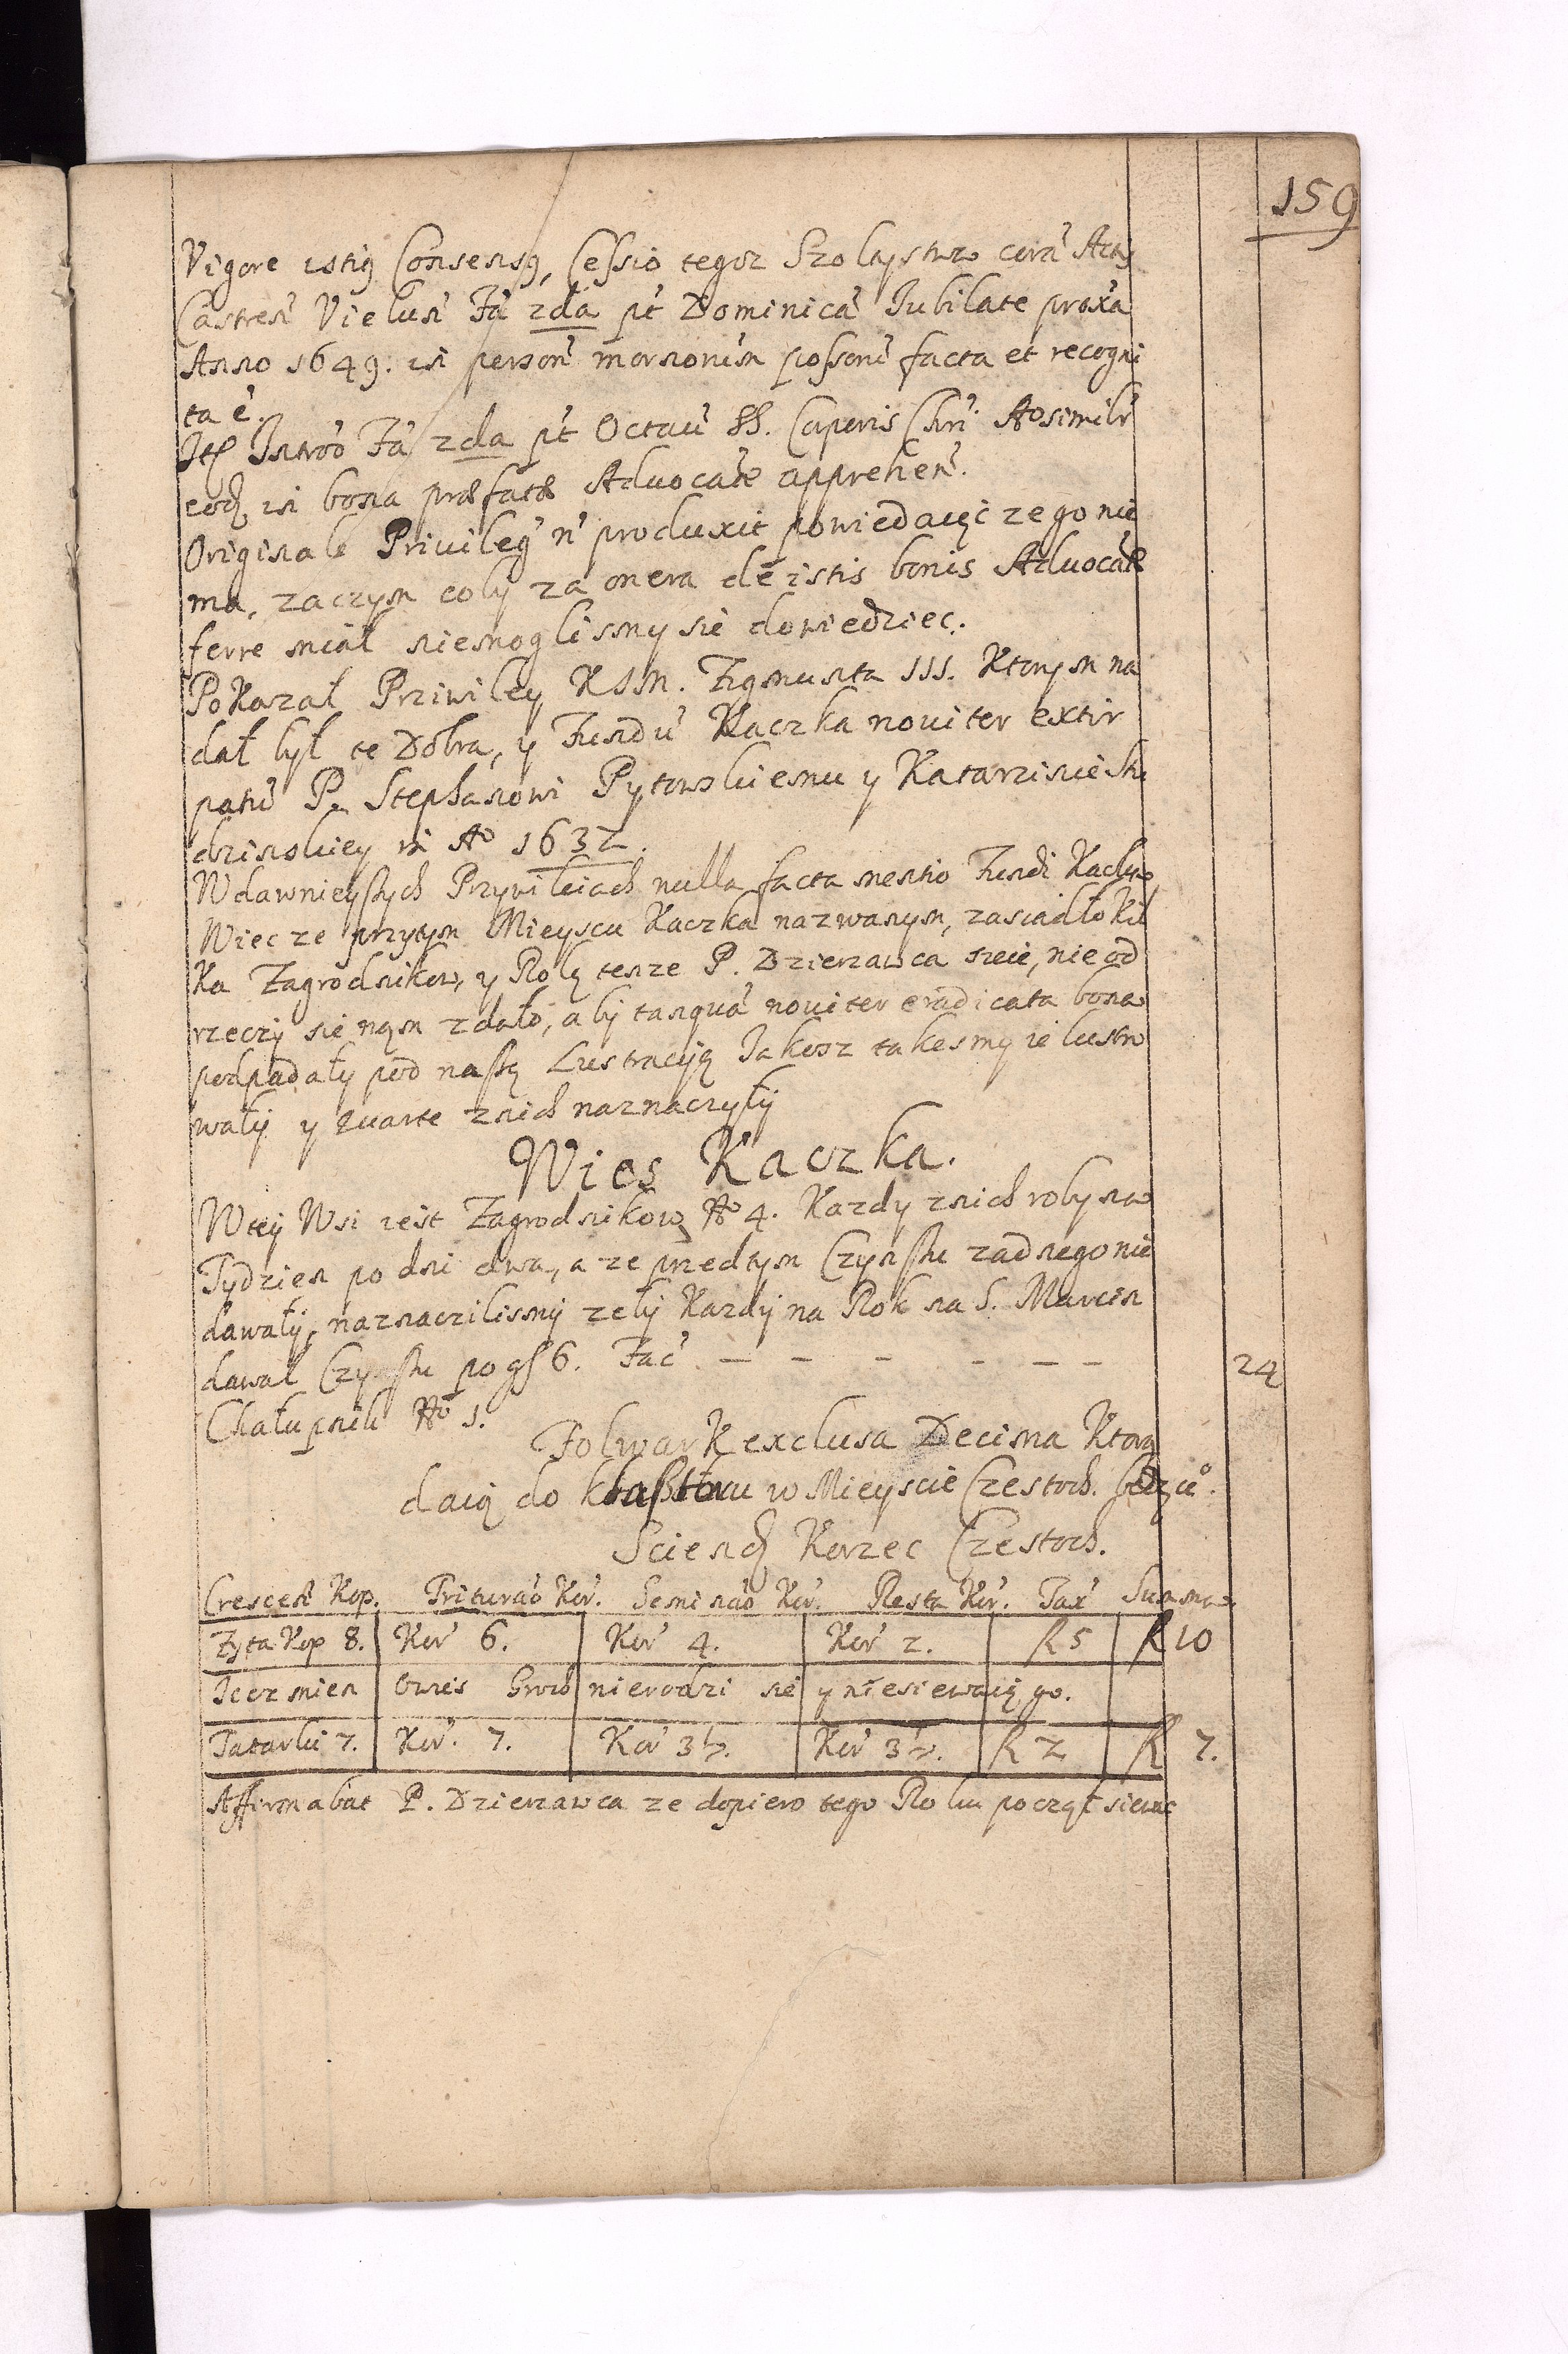 159
Vigore istiꝰ Consensꝰ, Cessio tegoz Szoltystwa corā Actis
Castren̄ Vielun̄ Fā 2da pt̄ Dominicā Iubilate proxā
Anno 1649. in person̄ mornorum possor̄ facta et recogni
ta ē.
Itē Introō Fā 2da pt̄ Octav̄ SS. Corporis Chri Aō simil̄r
eod̄ in bona præfatæ Advocatiæ apprehen̄.
Originale Privileḡ n̄ produxit powiedaiąc ze go nie
ma, zaczym coby za onera de istis bonis Advocatiæ
ferre miał niemoglismy sie dowiedziec.
Pokazał Priwiley K J M. Zigmunta III. Ktorym na
dał był te Dobra, y Fundū Kaczka noviter extir
patū P. Stephanowi Pytowskiemu y Katarzinie Stu
dzinskiey in Aō 1632.
W dawnieyszych Przywileiach nulla facta mentio Fundi Kaczka
Wiec ze przytym Mieyscu Kaczka nazwanym, zasiadło kil
ka Zagrodnikow, y Rolą tenze P. Dzierzawca sieie, nie od
rzeczy sie nam zdało, aby tanquā noviter eradicata bona
podpadały pod naszą Lustracyją Jakosz takesmy ie lustro
wały y quarte znich naznaczyły
Wies Kaczka.
Wtey Wsi iest Zagrodnikow Nō 4. Kazdy znich roby na
Tydzien po dni dwa, a ze przedtym Czynszu zadnego nie
dawały, naznaczilismy zeby kazdy na Rok na S. Marcin
dawał Czynszu po gſ 6. Fac̄ - - - - - - 24
Chałupnik Nō 1.
Folwark exclusa Decima Ktorą
daią do klasztoru w Mieyscie Czestoch. będące°.
Sciend̄ Korzec Czestoch.
Crescen̄ Kop. Trituraō Kor̄. Seminaō Kor̄. Resta Kor̄. Tax̄ Summa.
Zyta Kop 8. Kor̄ 6. Kor̄ 4. Kor̄ 2. f 5 f 10
Ieczmien Owies Groch nierodzi sie y niesiewaią go.
Tatarki 7. Kor̄. 7. Kor̄ 3½. Kor̄ 3½. f 2 f 7.
Affirmabat P. Dzierzawca ze dopiero tego Roku począł siewac